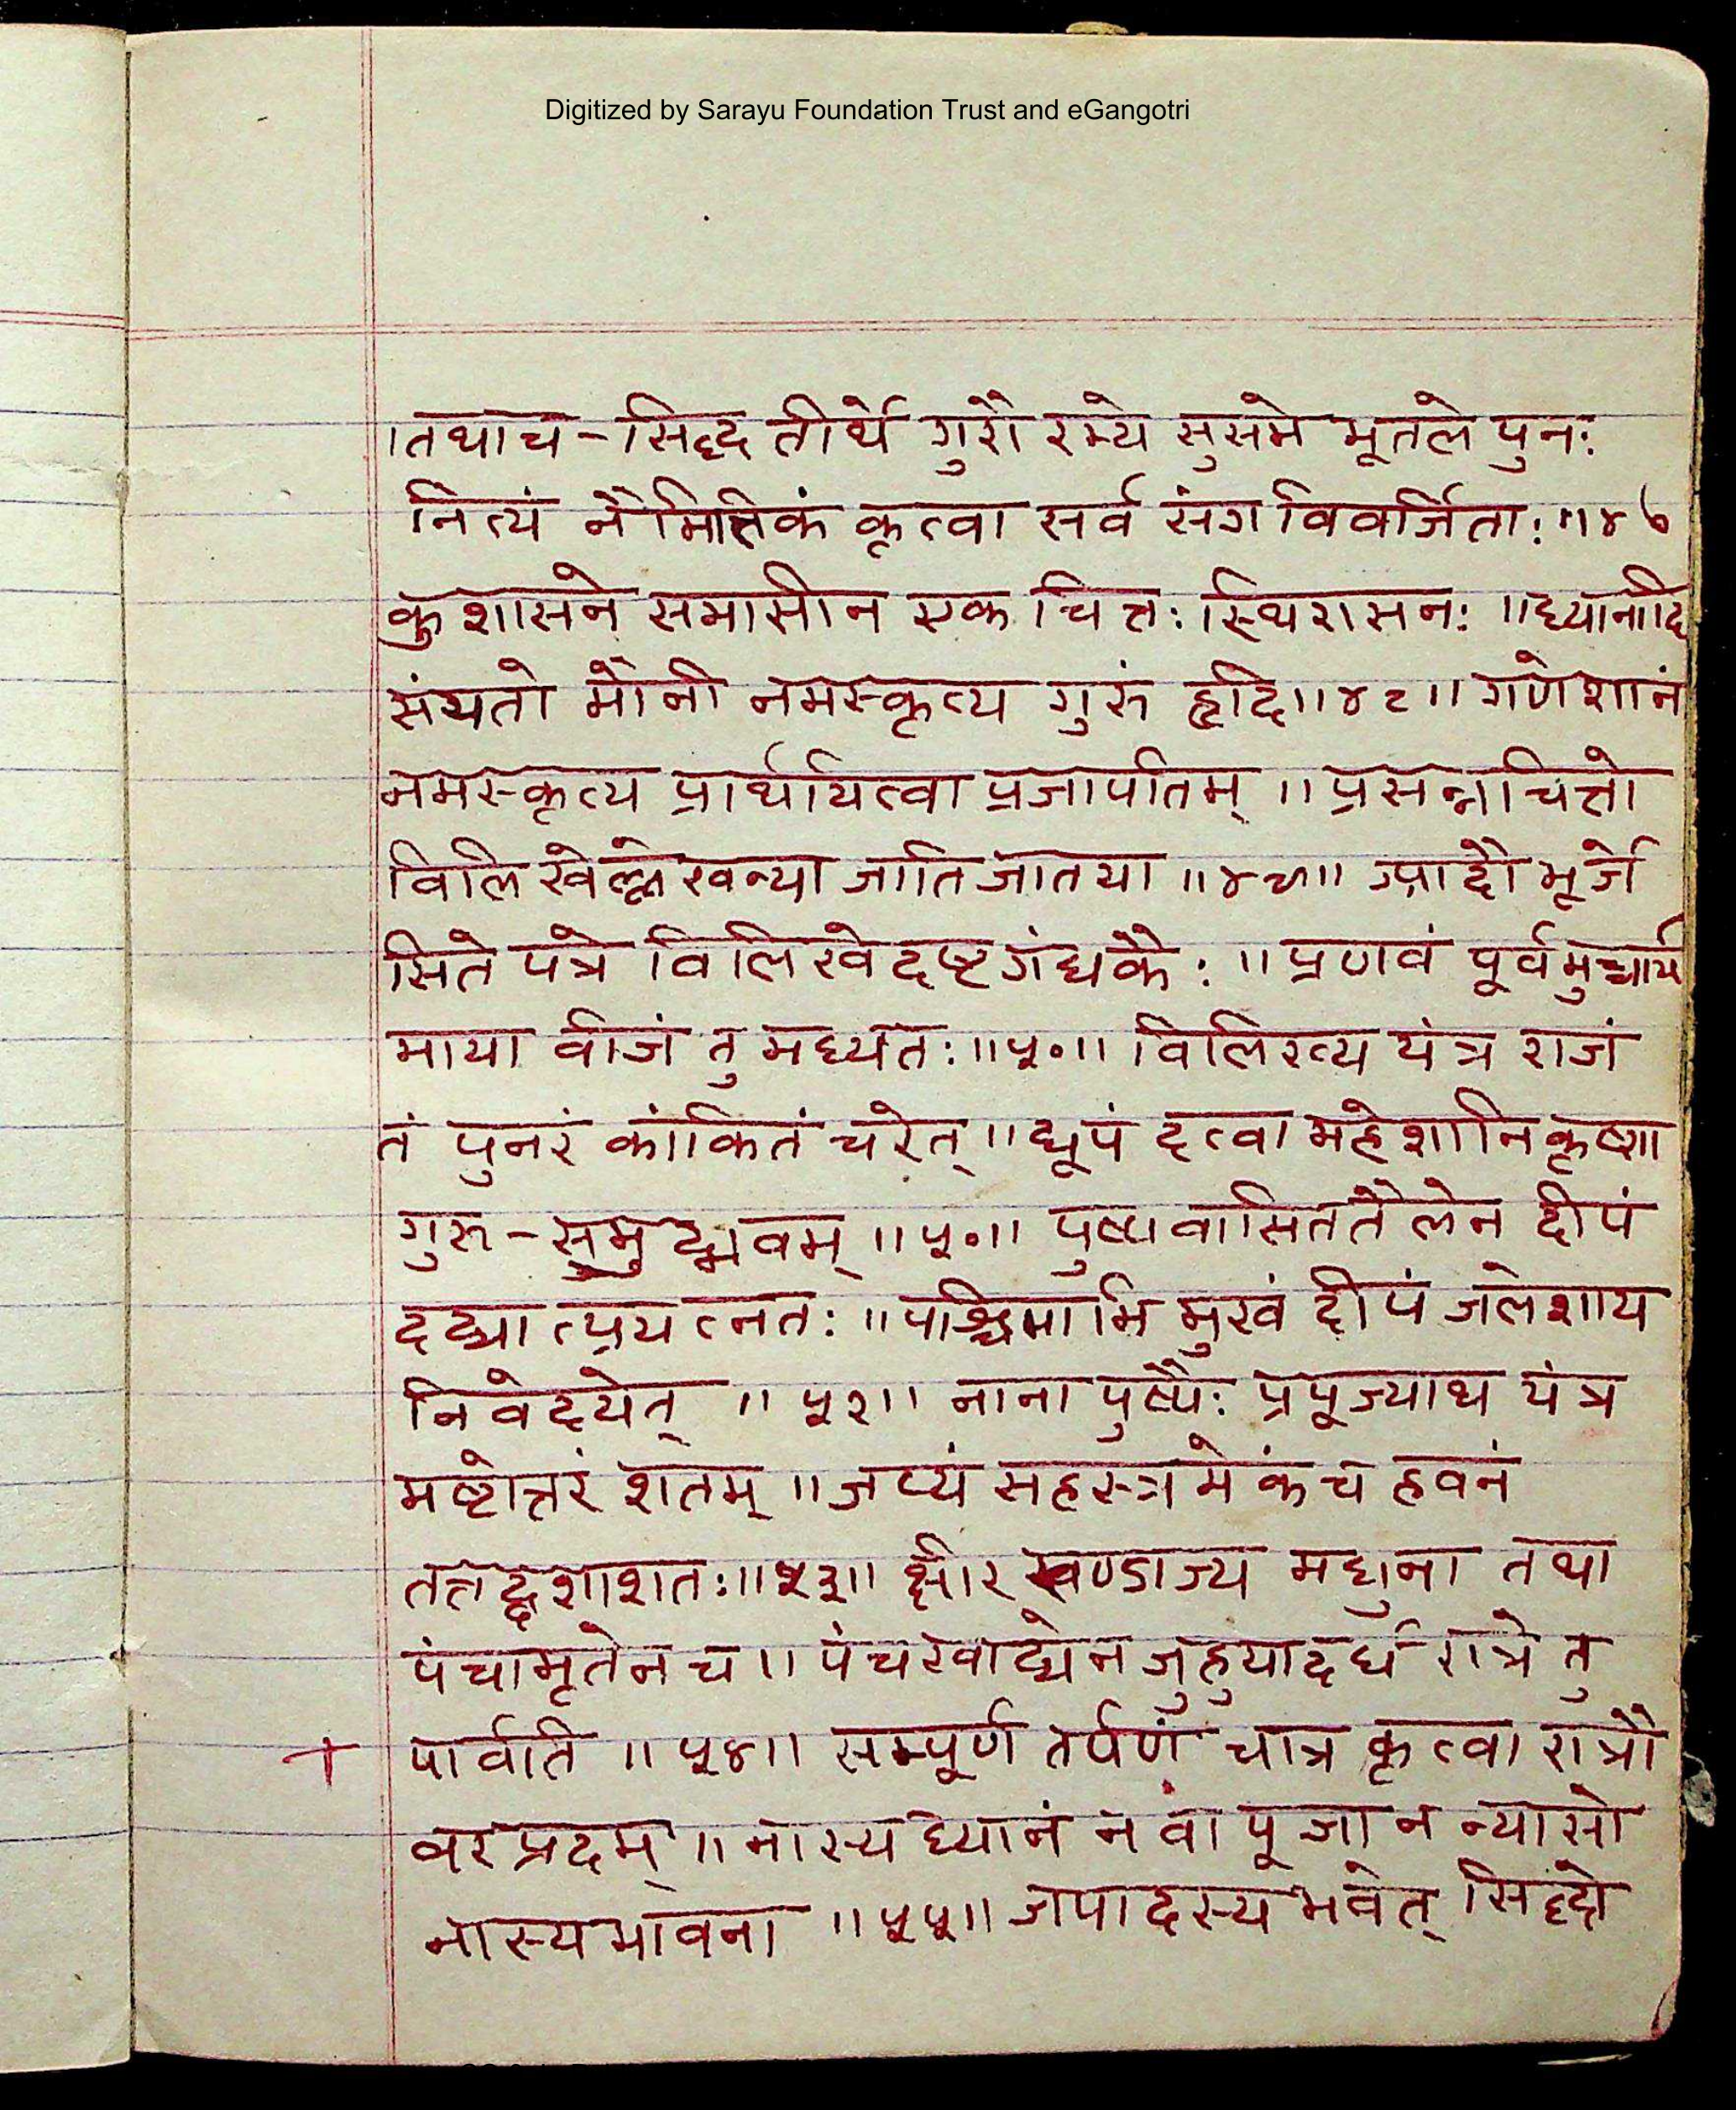 Digitized by Sarayu Foundation Trust and eGangotri
।तथाच - सिद्ध तीर्थे गुरौ रम्ये सुसमे भूतले पुनः
नित्यं नैमित्तिकं कृत्वा सर्व संग विवर्जिताः ॥४७
कुशासने समासीन एक चित्तः स्थिरासनः ॥ध्यानादि
संयतो मौनी नमस्कृत्य गुरुं हृदि॥४८॥ गणेशानं
नमस्कृत्य प्रार्थयित्वा प्रजापतिम् ॥ प्रसन्नचित्तो
विलिखेल्लेखन्या जाति जातया ॥४९॥ आदौ भूर्जे
सिते पत्रे विलिखेदष्टगंधकैः ॥ प्रणवं पूर्वमुच्चार्य
माया वीजं तु मध्यतः॥५०॥ विलिख्य यंत्र राजं
तं पुनरं कांकितं चरेत् ॥धूपं दत्वा महेशानि कृष्णा
गुरु - समुद्भवम् ॥५०॥ पुष्पवासिततैलेन दीपं
दद्या त्प्रयत्नतः ॥पश्चिमाभि मुखं दीपं जलेशाय
निवेदयेत् ॥ ५२॥ नाना पुष्पैः प्रपूज्याथ यंत्र
मष्टोत्तरं शतम् ॥जप्यं सहस्त्रमेकं च हवनं
तत्तद्दशाशतः॥५३॥ क्षीर खण्डाज्य मधुना तथा
पंचामृतेन च॥ पंचखाद्येन जुहुयादर्ध रात्रे तु
+ पार्वति ॥ ५४॥ सम्पूर्ण तर्पणं चात्र कृत्वा रात्रौ
वर प्रदम् ॥ नास्य ध्यानं न वा पूजा न न्यासो
नास्य भावना ॥५५॥ जपादस्य भवेत् सिद्दो